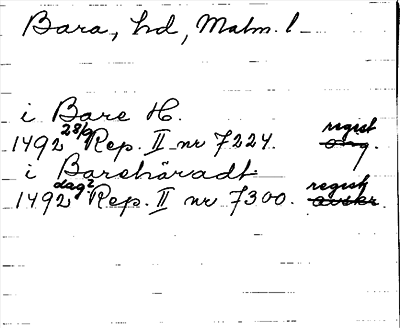 Bara, hd, Malm. l
i Bare H.
1492 28/9 Rep. II nr 7224. regist orig.
i Barehäradt
1492 dag? Rep. II nr 7300. regist avskr.